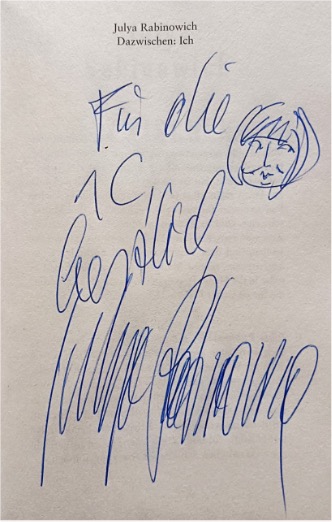 Julya Rabinowich
Dazwischen: Ich
Für die
1C,
herzlich,
Julya Rabinowich